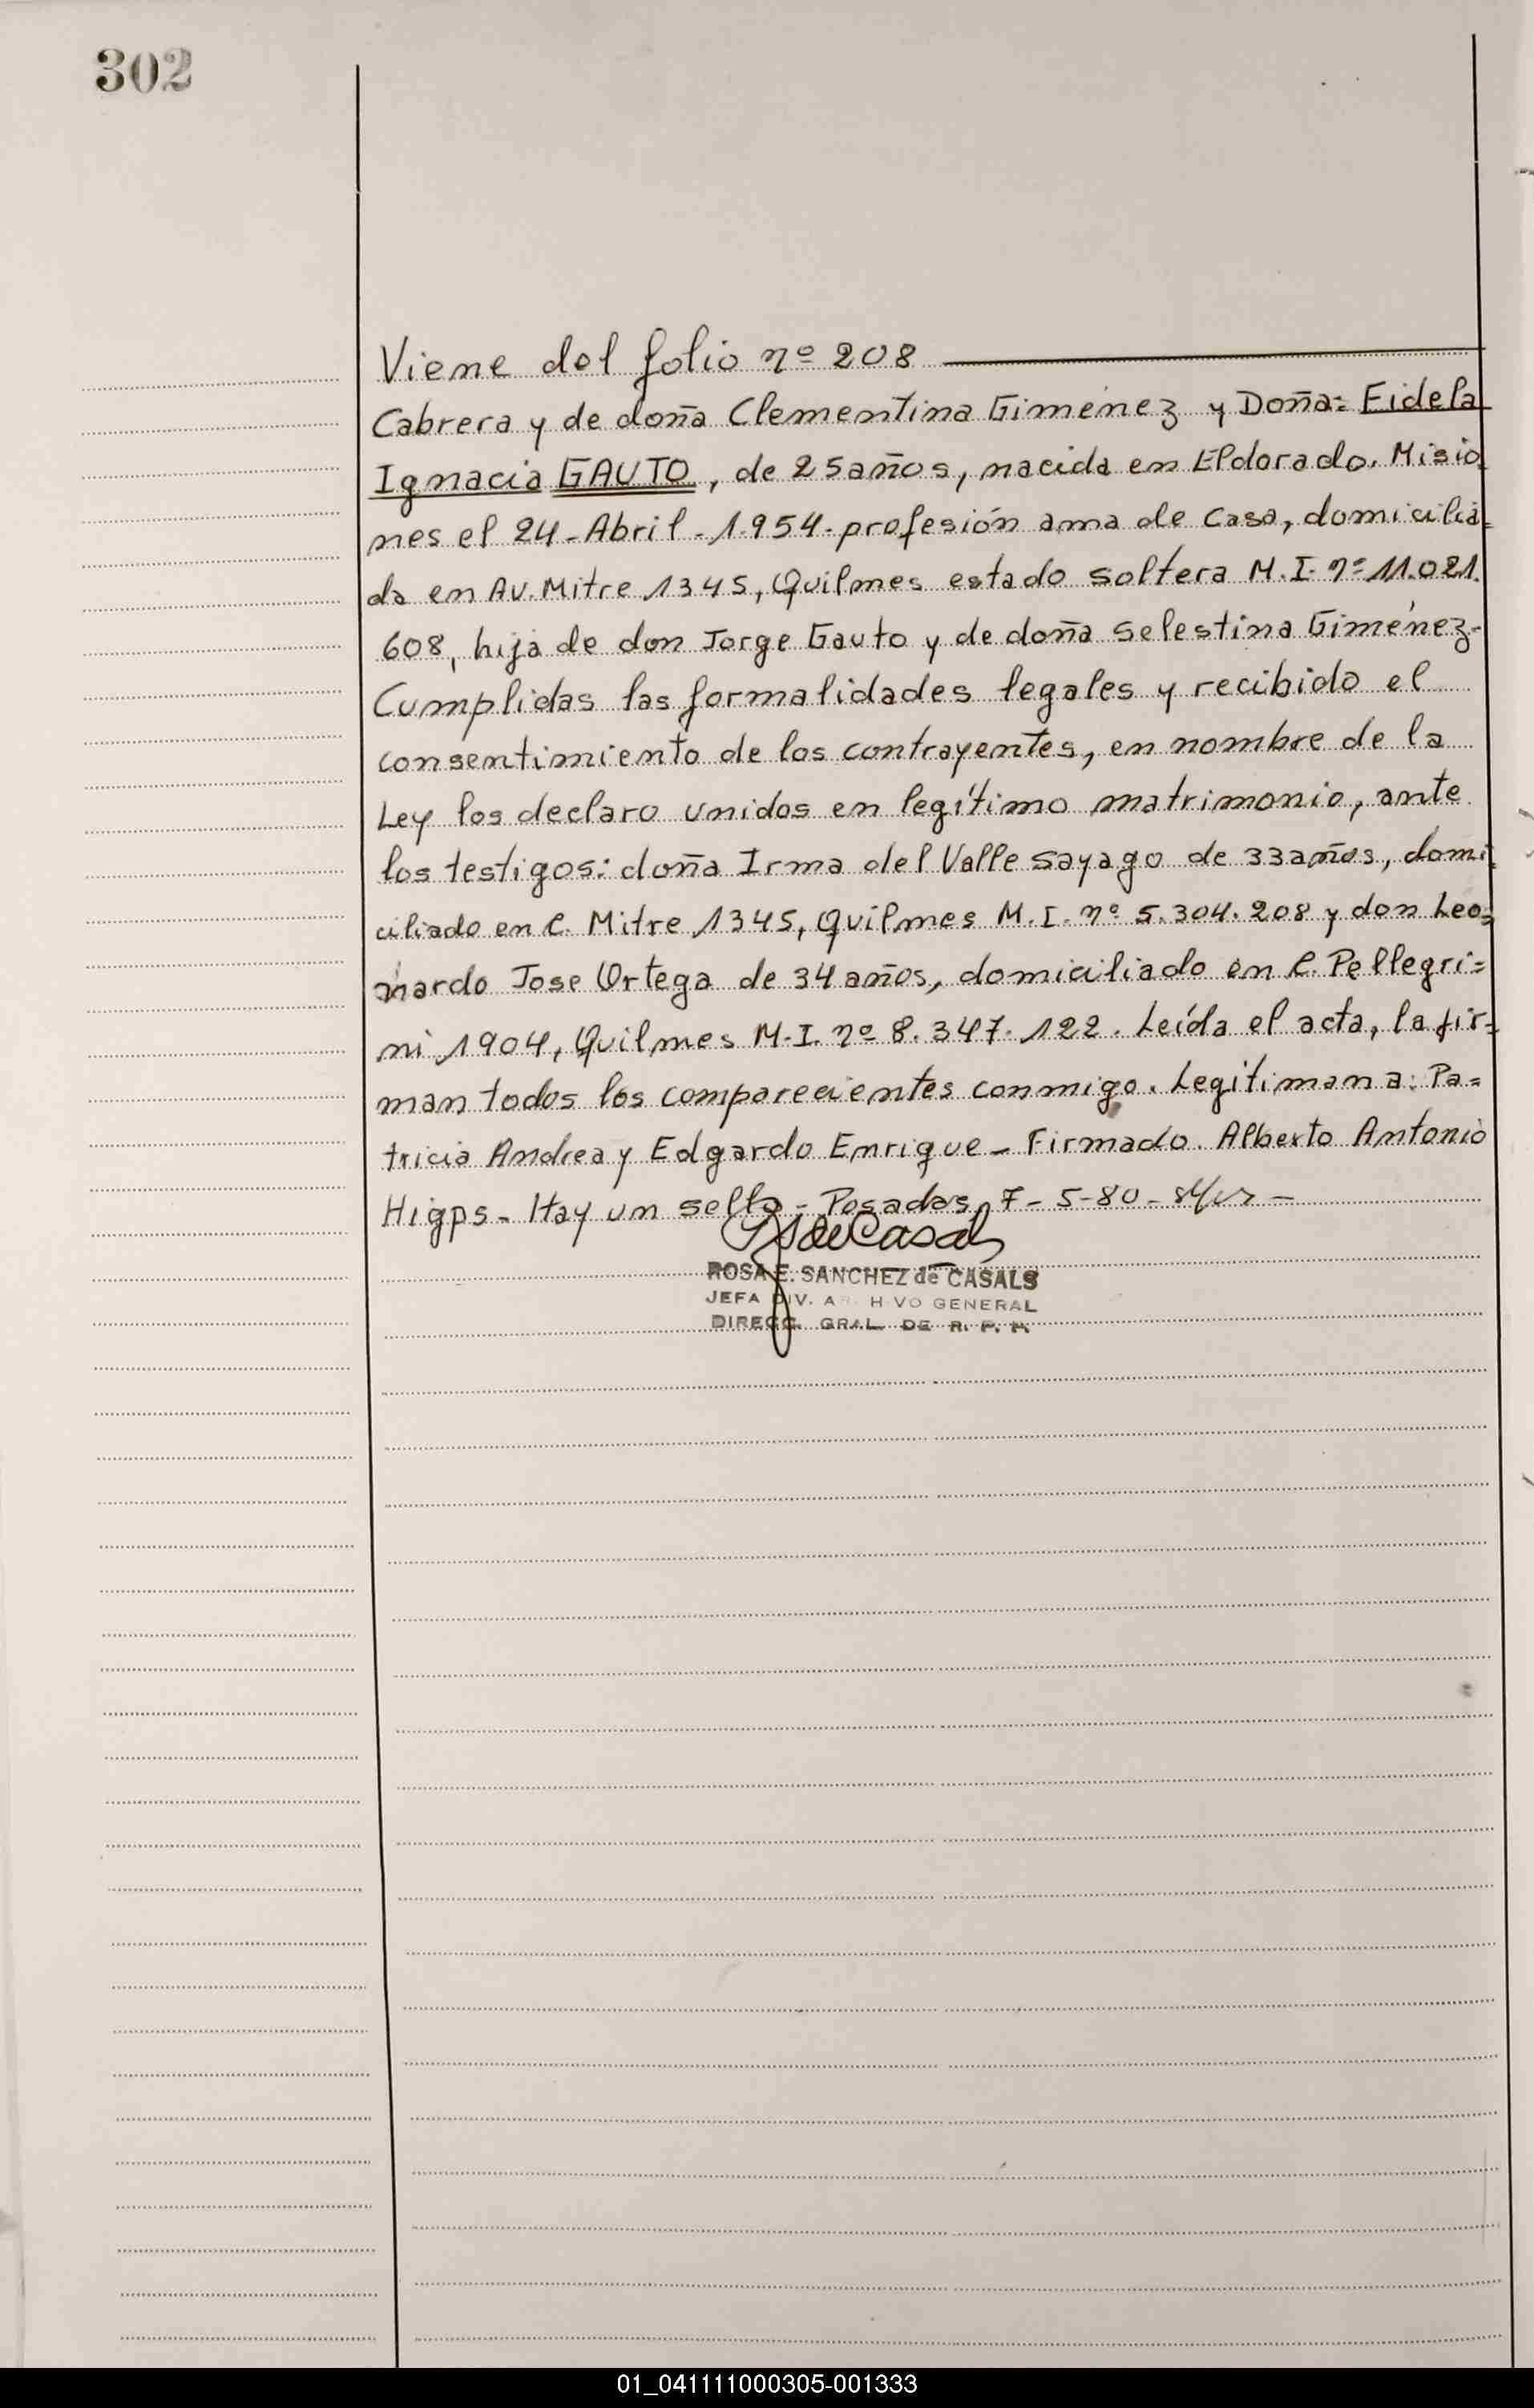 302
Viene del folio nº 208
Cabrera y de doña Clementina Giménez y Doña: Fidela
Ignacia GAUTO, de 25 años, nacida en Eldorado. Misio
nes el 24-Abril-1.954. profesión ama de casa, domicilia=
da en Av. Mitre 1345, Quilmes estado soltera M.I. nº 11.021.
608, hija de don Jorge Gauto y de doña Selestina Giménez-
Cumplidas las formalidades legales y recibido el
consentimiento de los contrayentes, en nombre de la
Ley los declaro unidos en legítimo matrimonio, ante
los testigos: doña Irma del Valle Sayago de 33 años, domi
ciliado en C. Mitre 1345, Quilmes M.I. nº 5.304.208 y don Leo=
nardo Jose Ortega de 34 años, domiciliado en C. Pellegri=
ni 1904, Quilmes M.I. nº 8.347.122. Leída el acta, la fir=
man todos los comparecientes conmigo. Legitiman a: Pa=
tricia Andrea y Edgardo Enrique - Firmado. Alberto Antonio
Higps - Hay un sello - Posadas, 7-5-80-
ROSA E. SANCHEZ de CASALS
JEFA DIV. ARCHIVO GENERAL
DIRECC. GRAL. DE R. P. P.
01_041111000305-001333